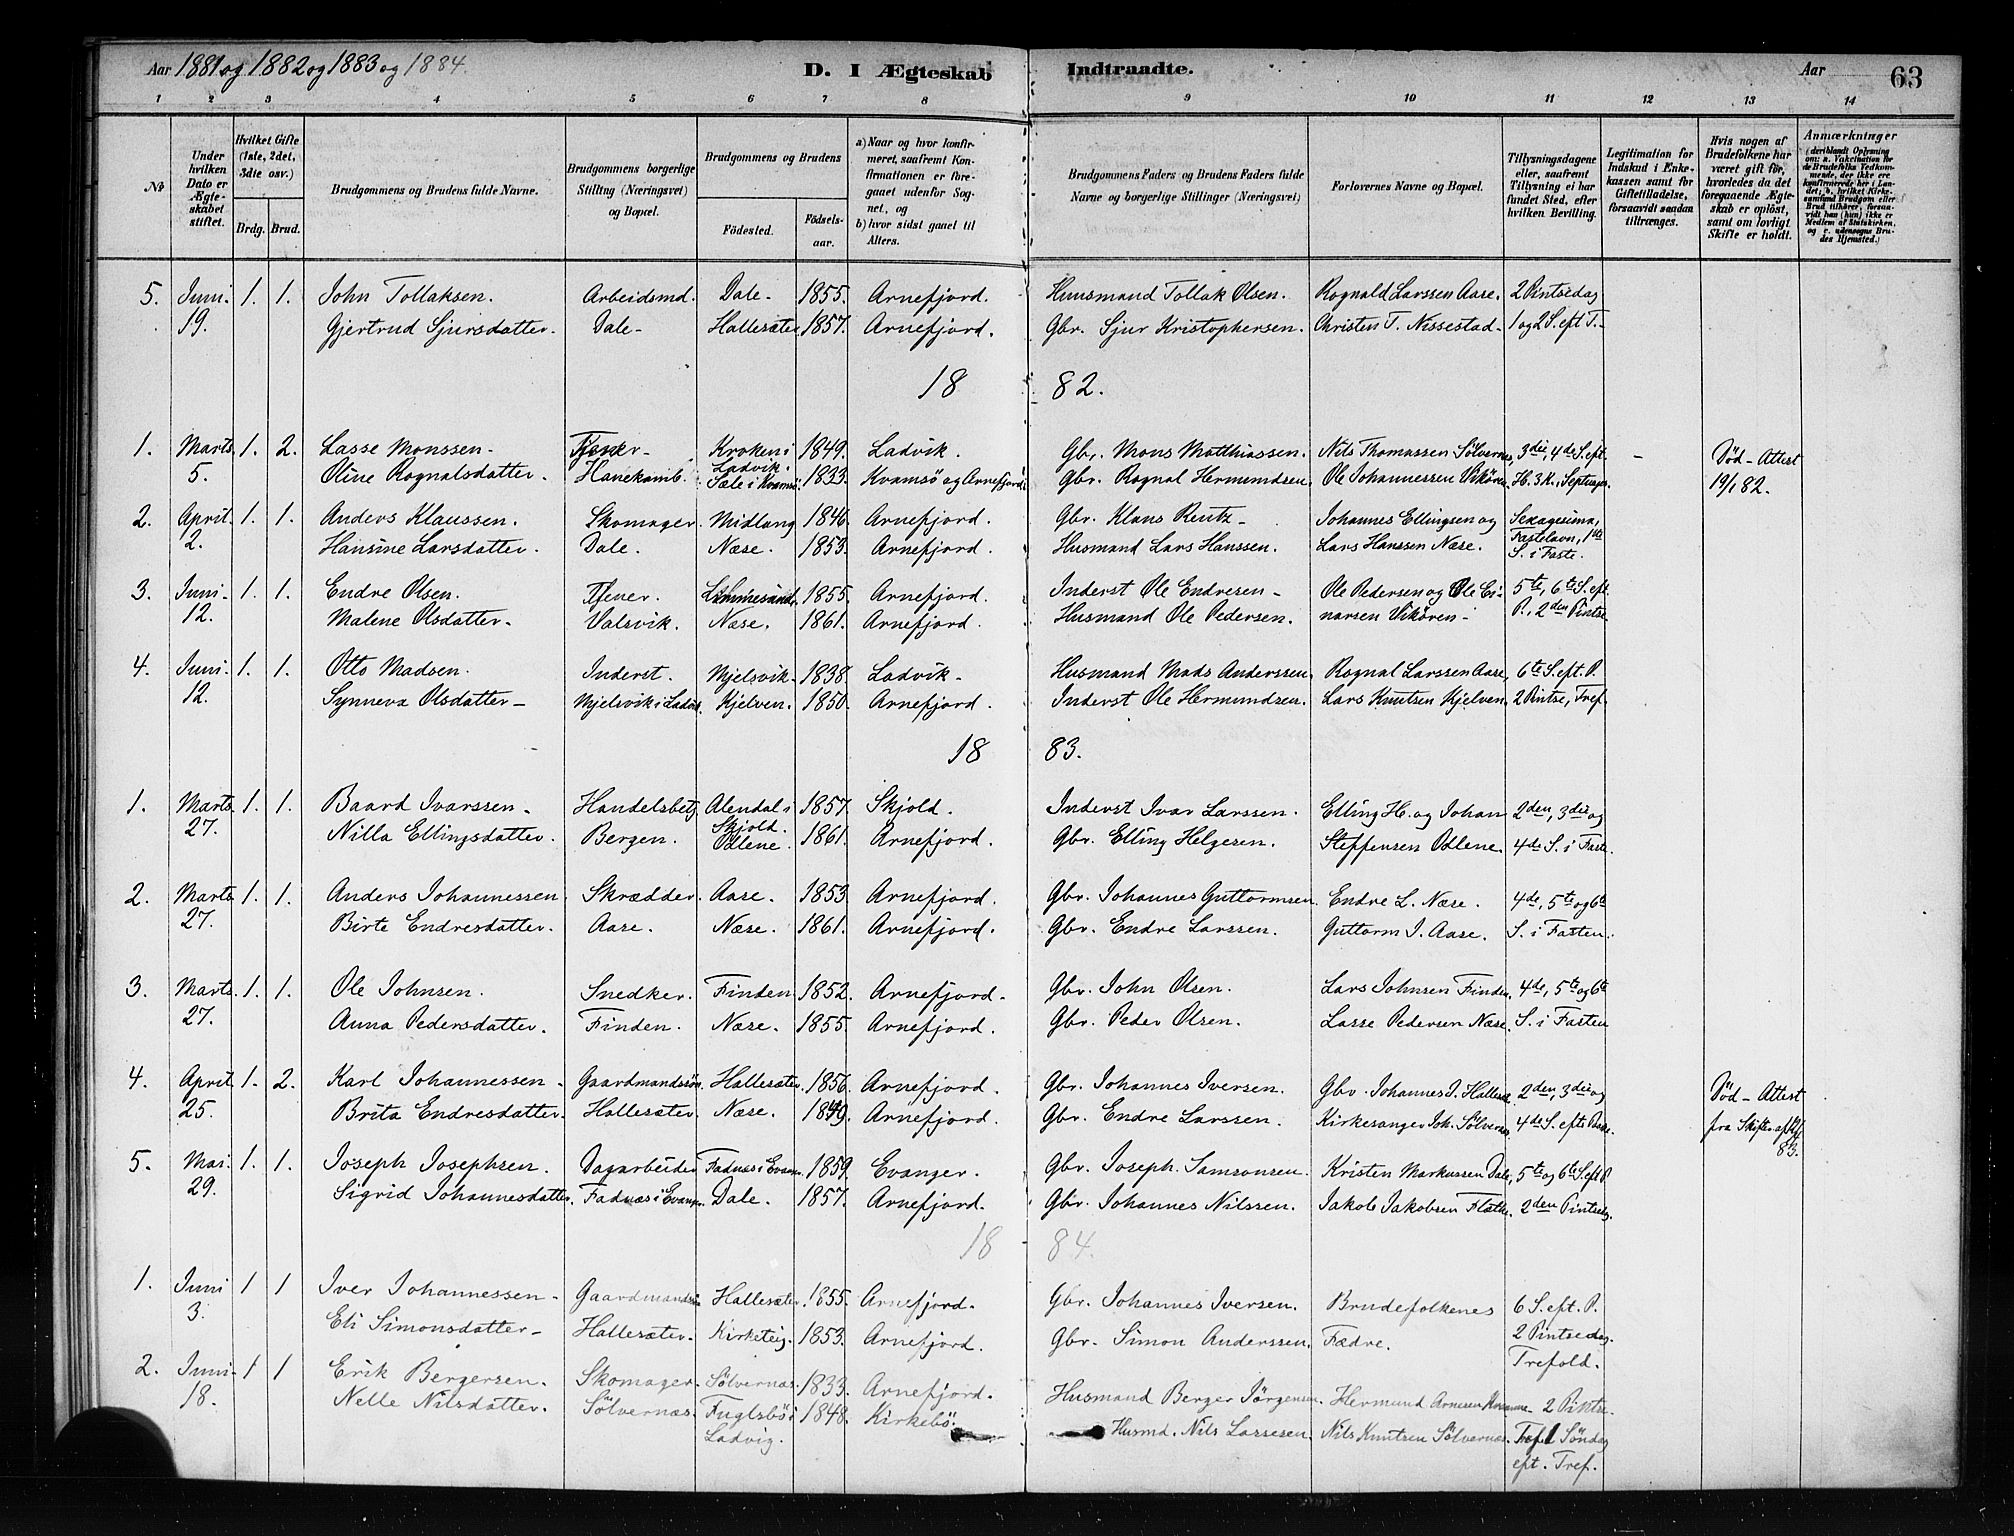 Aar 1881 og 1882 og 1883 og 1884. D. I Ægteskab Indtraadte. Aar 63
1 2 3 4 5 6 7 8 9 10 11 12 13 14
No
Under hvilken Dato er Ægteskabet stiftet.
Hvilket Gifte (1ste, 2det, 3die osv.)
Brdg. Brud.
Brudgommens og Brudens fulde Navne.
Brudgommens borgerlige Stilling (Næringsvei) og Bopæl.
Brudgommens og Brudens
Fødested. Fødsels-aar.
a) Naar og hvor konfirmeret, saafremt Konfirmationen er foregaaet udenfor Sognet, og
b) hvor sidst gaaet til Alters.
Brudgommens Faders og Brudens Faders fulde Navne og borgerlige Stillinger (Næringsvei)
Forlovernes Navne og Bopæl.
Tillysningsdagene eller, saafremt Tillysning ei har fundet Sted, efter hvilken Bevilling.
Legitimation for Indskud i Enkekassen samt for Giftetilladelse, forsaavidt saadan tiltrænges.
Hvis nogen af Brudefolkene har været gift før, hvorledes da det foregaaende Ægteskab er opløst, samt om lovligt Skifte er holdt.
Anmærkninger (deriblandt Oplysning om: a. Vakcination for de Brudefolks Vedkommende, der ikke ere konfirmerede her i Landet; b. hvilket Kirkesamfund Brudgom eller Brud tilhører, forsaavidt han (hun) ikke er Medlem af Statskirken, og c. udensogns Brudes Hjemsted.)
5. Juni 1. 1. John Tollaksen. Arbeidsmd. Dale 1855. Arnefjord. Huusmand Tollak Olsen. Rognald Larssen Aase. 2 Pintsedag
19. Gjertrud Sjursdatter. Dale Hallesæter 1857. Arnefjord. Gbr. Sjur Kristophersen. Christen T. Nissestad 1 og 2 S. eft T.
18 82.
1. Marts 1. 2. Lasse Monssen Tjener Kroken i Ladvik. 1849. Ladvik. Gbr. Mons Matthiassen. Nils Thomassen Sölvernes, 3die, 4de S. eft. Död - Attest
5. Oline Rognalsdatter. Hanekamb. Sæle i Kvamsö 1833. Kvamsö og Arnefjord. Gbr. Rognal Hermundsen. Ole Johannessen Vikören. H. 3 K., Septuages. 19/1 82.
2. April 1. 1. Anders Klaussen. Skomager Midlang 1846. Arnefjord. Gbr. Klaus Rentz Johannes Ellingsen og Sexagesima,
2. Hansine Larsdatter. Dale. Næse. 1853. Arnefjord. Husmand Lars Hanssen. Lars Hanssen Næse. Fastelavn, 1ste S. i Faste.
3. Juni 1. 1. Endre Olsen. Tjener. 1855. Arnefjord. Inderst Ole Endresen Ole Pedersen og Ole Ei- 5te, 6te S. eft.
12. Malene Olsdatter. Valsvik. Næse. 1861. Arnefjord. Husmand Ole Pedersen. narsen Vikören P., 2den Pintse
4. Juni 1. 1. Otto Madsen. Inderst. Mjelsvik 1838. Ladvik Husmand Mads Anderssen. Rognal Larssen Aase, 6te S. eft. P.
12. Synneva Olsdatter Mjelsvik i Ladvik. Kjelven. 1850. Arnefjord. Inderst Ole Hermundsen. Lars Knutsen Kjelven 2 Pintse, Tref.
18 83.
1. Marts 1. 1. Baard Ivarssen Handelsbetj. Alendal i Skjold. 1857. Skjold. Inderst Ivar Larssen. Elling H. og Johan 2den, 3die og
27. Nilla Ellingsdatter. Bergen. Odlene. 1861. Arnefjord. Gbr. Elling Helgesen. Steffensen Odlene. 4de S. i Faste.
2. Marts 1. 1. Anders Johannessen Skrædder. Aase. 1853. Arnefjord. Gbr. Johannes Guttormsen. Endre L. Næse. 4de, 5te og 6te
27. Birte Endresdatter. Aase. Næse. 1861. Arnefjord. Gbr. Endre Larssen. Guttorm J. Aase. S. i Fasten.
3. Marts 1. 1. Ole Johnsen. Snedker. Finden 1852. Arnefjord. Gbr. John Olsen. Lars Johnsen Finden. 4de, 5te og 6te
27. Anna Pedersdatter. Finden. Næse. 1855. Arnefjord. Gbr. Peder Olsen. Lasse Pedersen Næse. S. i Fasten
4. April 1. 2. Karl Johannessen Gaardmandssön. Hallesæter 1856. Arnefjord. Gbr. Johannes Iversen. Gbr. Johannes I. Hallesæ. 2den, 3die og Död - Attest
25. Brita Endresdatter. Hallesæter. Næse. 1849. Arnefjord. Gbr. Endre Larssen. Kirkesanger Joh. Sölvernæs. 4de S. eft Paaske. fra Skifter. 83.
5. Mai 1. 1. Joseph Josephsen. Dagarbeider Fadnæs i Evanger. 1859. Evanger. Gbr. Joseph Samsonsen. Kristen Markussen Dale, 5te og 6te S. eft P
29. Sigrid Johannesdatter. Fadnæs i Evanger. Dale. 1857. Arnefjord. Gbr. Johannes Nilssen. Jakob Jakobsen Flæthe. 2den Pintsedg.
18 84.
1. Juni 1 1 Iver Johannessen Gaardmandssön Hallesæter. 1855. Arnefjord. Gbr. Johannes Iversen. Brudefolkenes 6 S. eft. P.
3. Eli Simonsdatter Hallesæter. Kirketeig. 1853. Arnefjord. Gbr. Simon Anderssen Fædre. 2 Pintsedag. Trefold.
2. Juni 1 1 Erik Bergersen. Skomager. Sölvernæs. 1833. Arnefjord. Husmand Berger Jörgensen. Hermund Arnesen 2 Pintse
18. Nelle Nilsdatter. Sölvernæs. Fuglsbö i Ladvig. 1848. Kirkebö. Husmd. Nils Lassesen. Nils Knutsen Sölvernæs. Tref 1 Söndag eft. Tref.